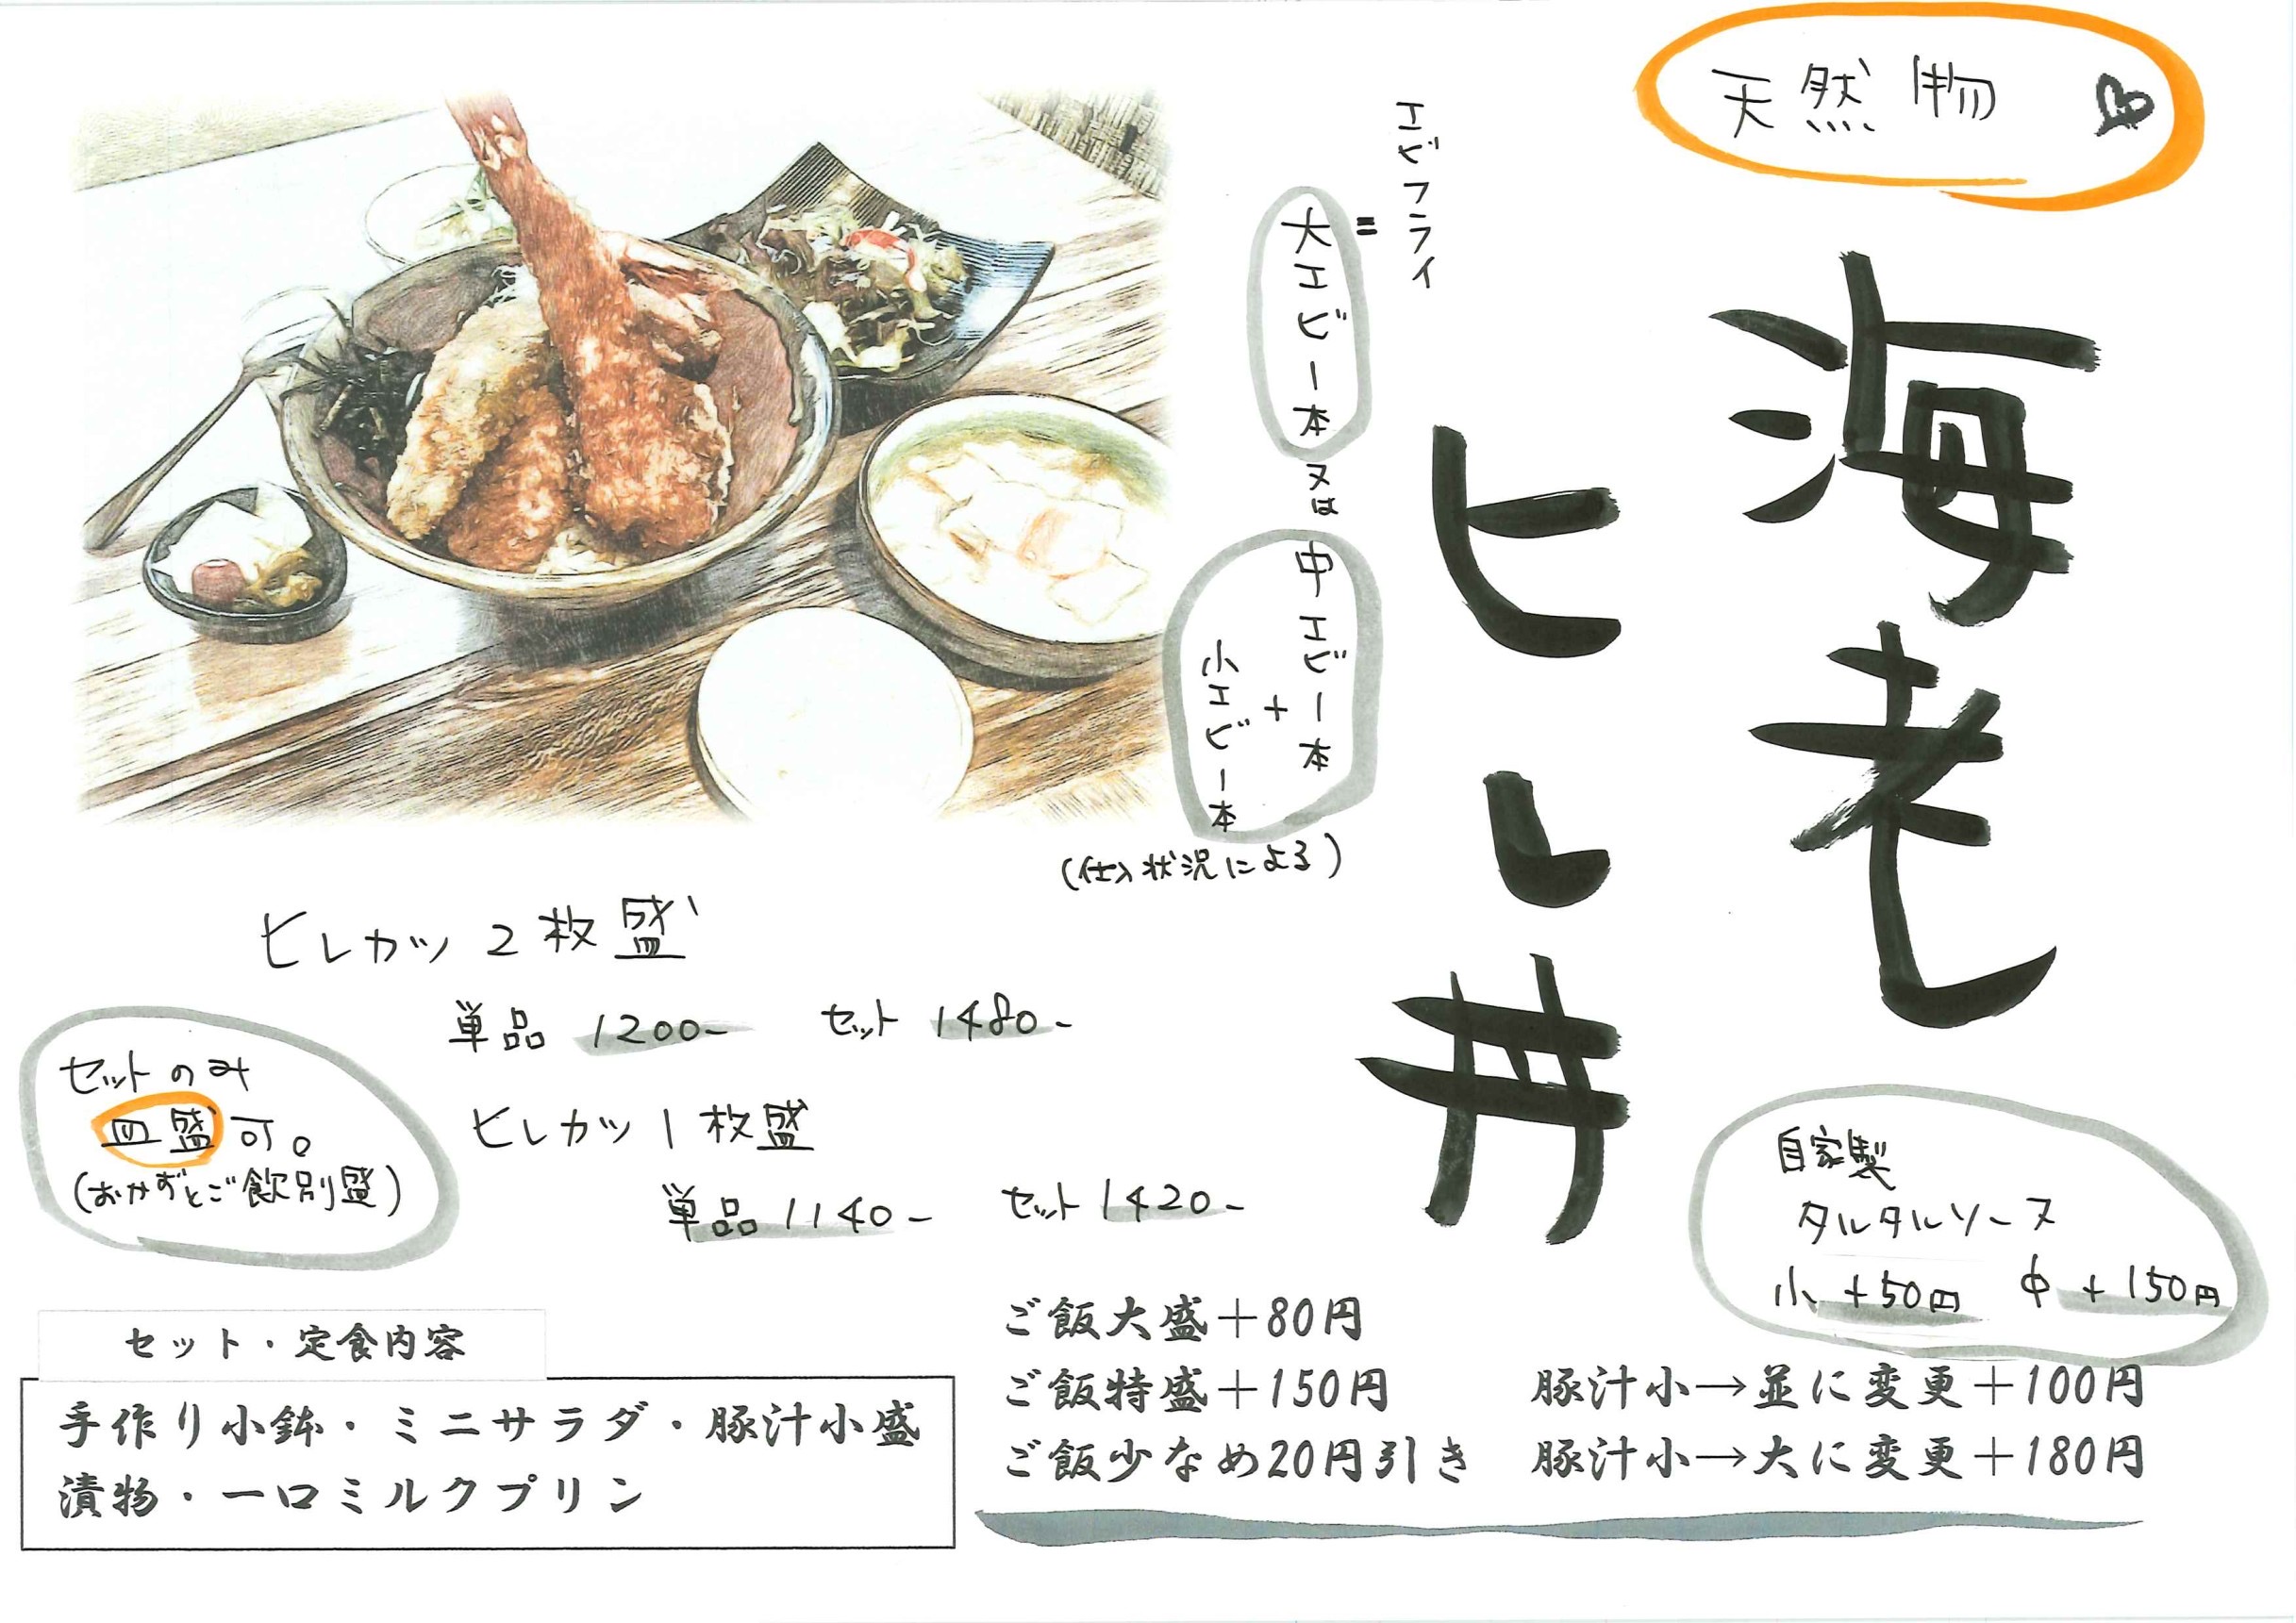 天然物
海老
ヒレ丼
エビフライ
=
大エビ一本又は中エビ一本
+
小エビ一本
(仕入状況による)
ヒレカツ2枚盛
単品 1200- セット 1480-
ヒレカツ1枚盛
単品 1140- セット 1420-
セットのみ
皿盛可。
(おかずとご飯別盛)
自家製
タルタルソース
小 +50円 中 +150円
セット・定食内容
手作り小鉢・ミニサラダ・豚汁小盛
漬物・一口ミルクプリン
ご飯大盛+80円
ご飯特盛+150円
ご飯少なめ20円引き
豚汁小→並に変更+100円
豚汁小→大に変更+180円